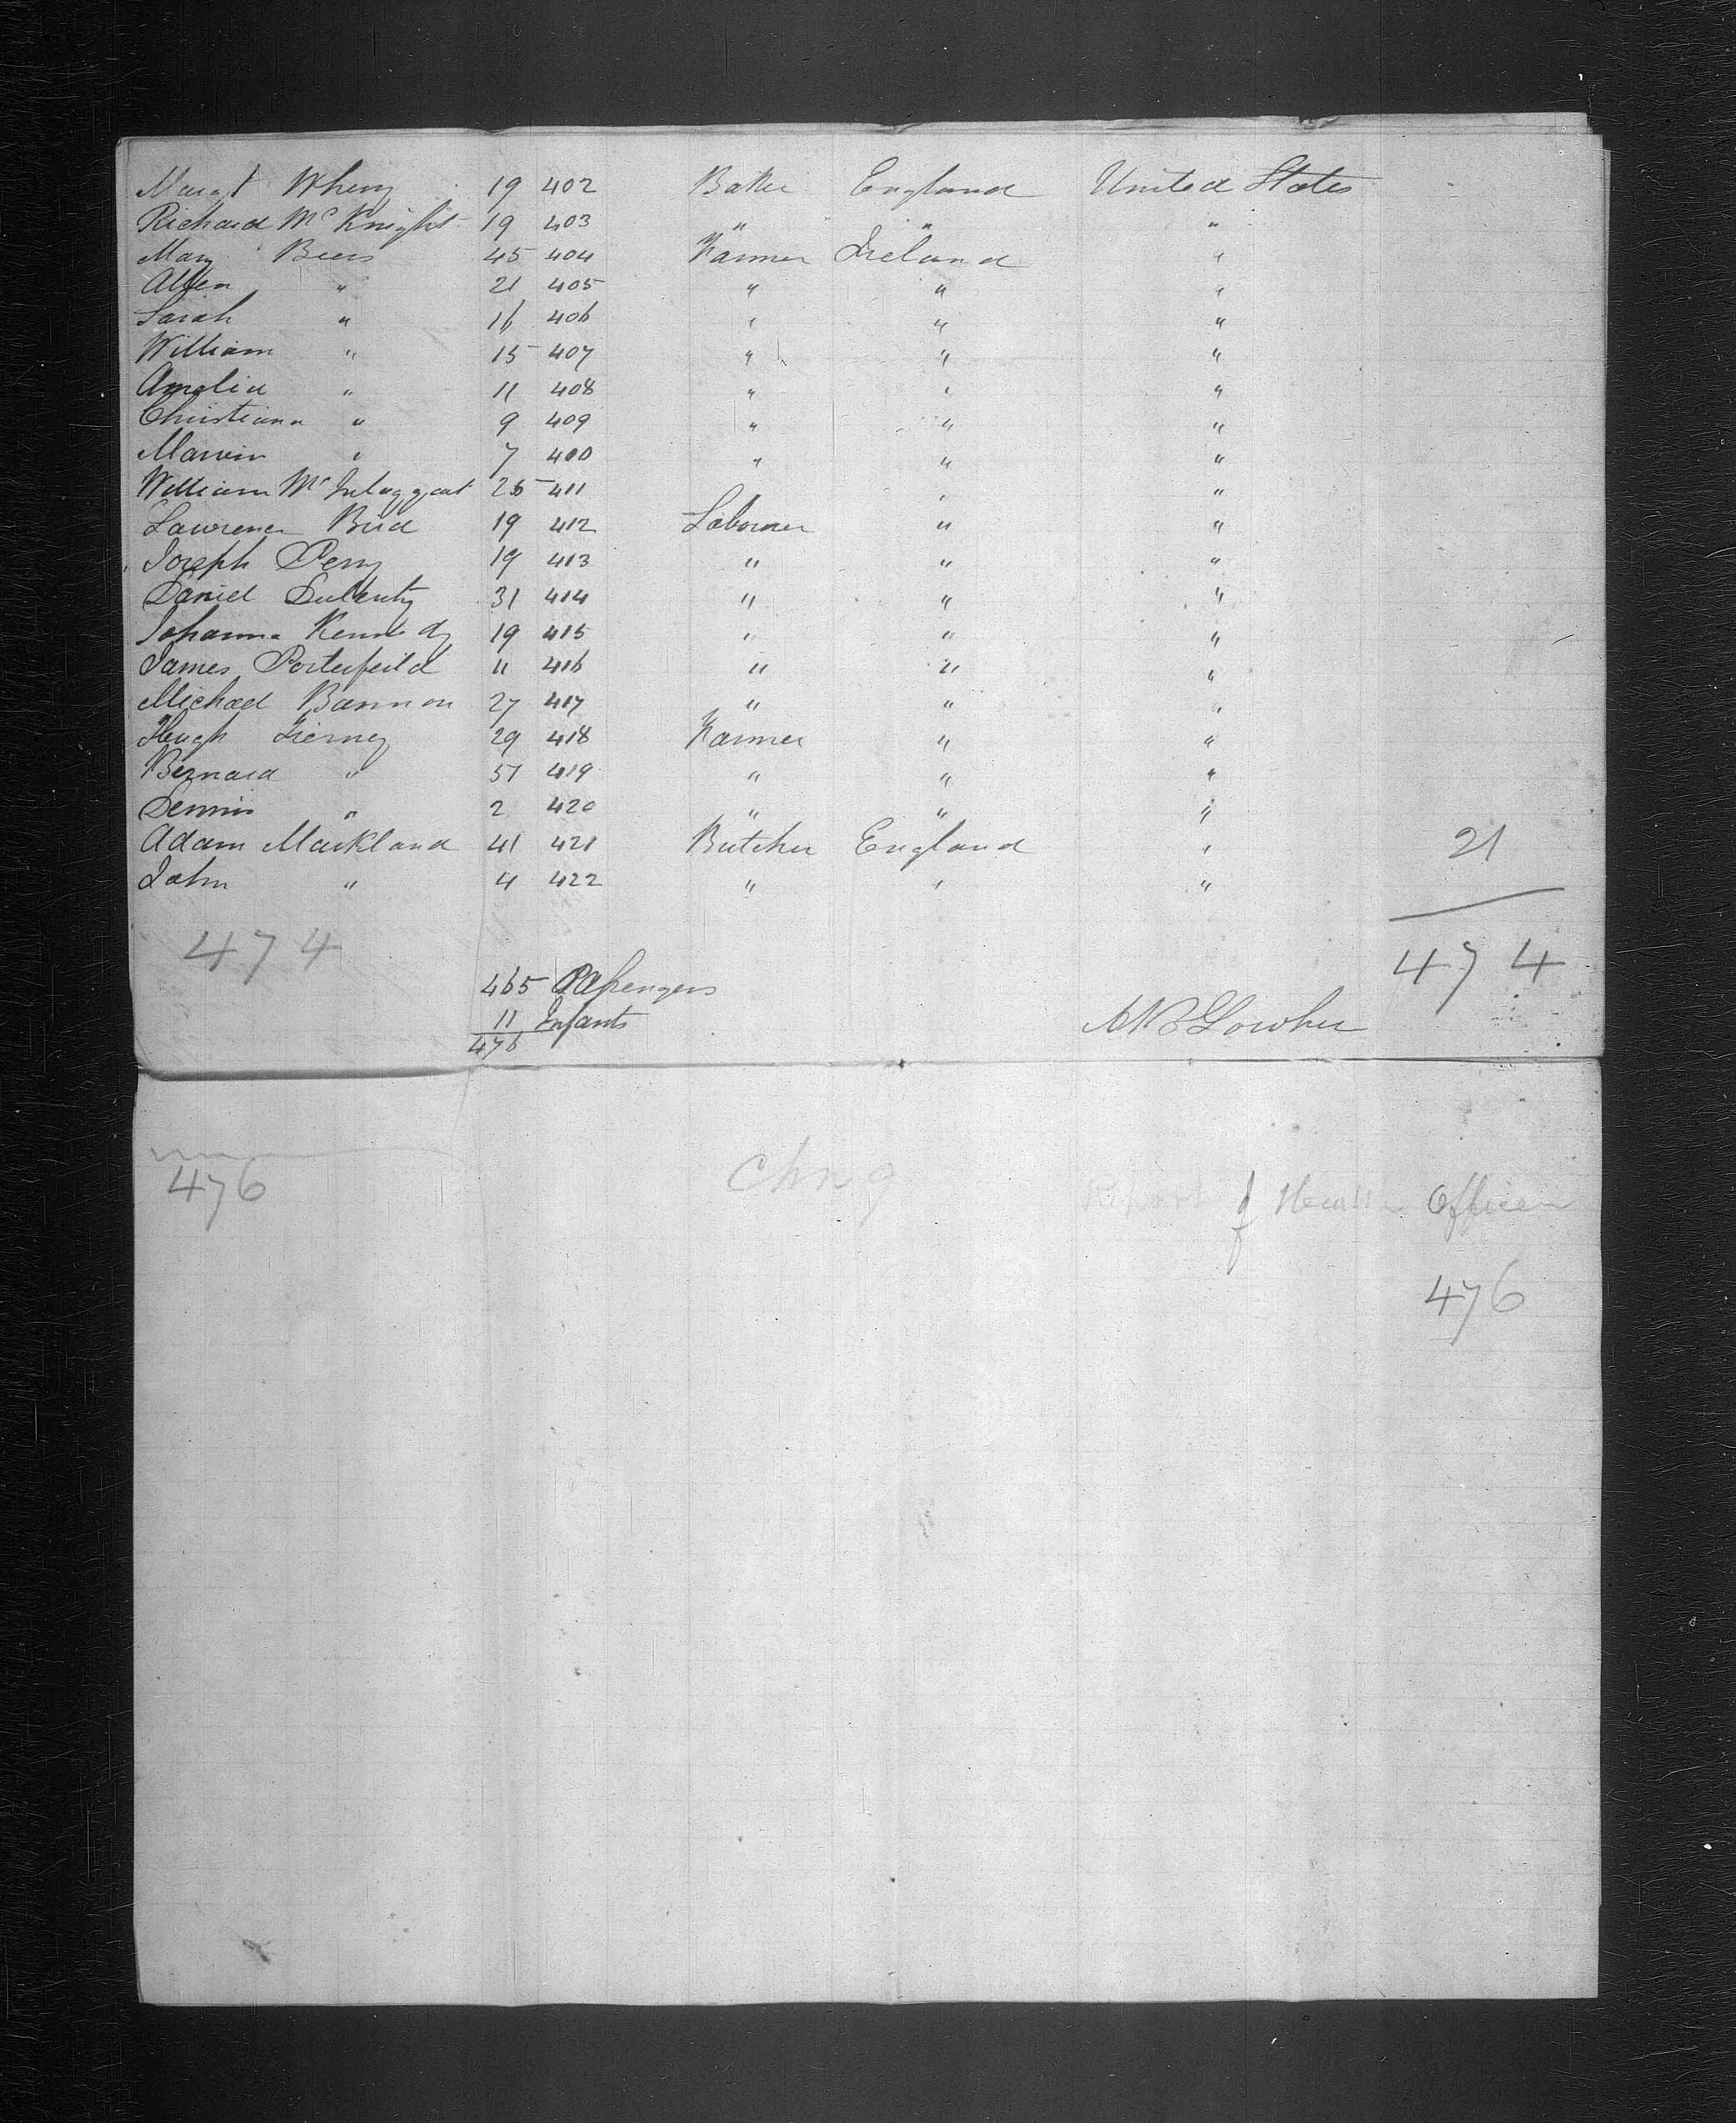 Margt Wherry 19 402 Baker England United States
Richard McKnight 19 403 " " "
Mary Beers 45 404 Farmer Ireland "
Allen " 21 405 " " "
Sarah " 16 406 " " "
William " 15 407 " " "
Amelia " 11 408 " " "
Christiana " 9 409 " " "
Marvin " 7 400 " " "
William Mc 25 411 " "
Lawrence Bird 19 412 Labourer " "
Joseph Perry 19 413 " " "
Daniel 31 414 " " "
Johanna Kennedy 19 415 " " "
James Porterfeild 11 416 " " "
Michael Bannon 27 417 " " "
Hugh Tierney 29 418 Farmer " "
Bernard " 57 419 " " "
Dennis " 2 420 " " "
Adam Markland 41 421 Butcher England " 21
John " 4 422 " " "
474 474
465 Passengers
11 Infants
476
476 Report of Health Officer
476